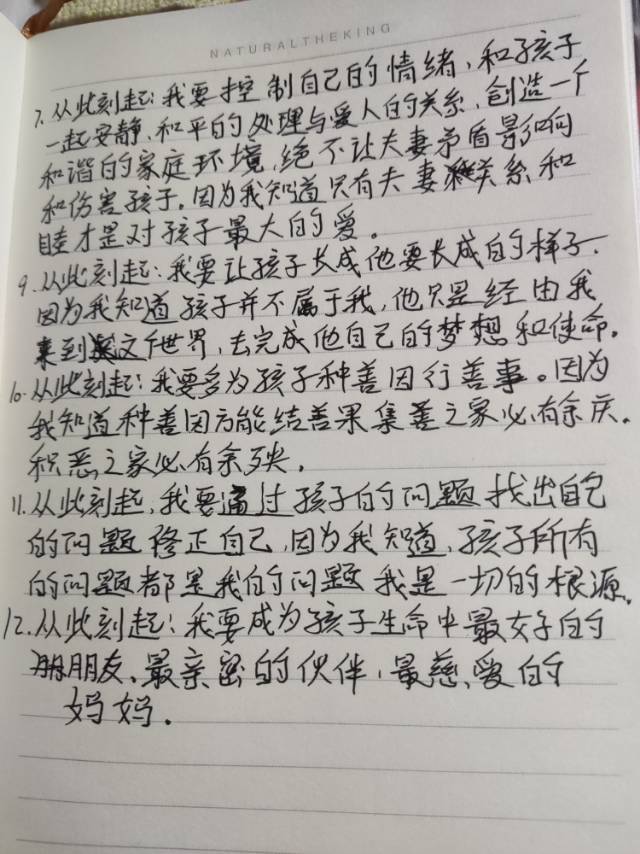 NATURALTHEKING
7. 从此刻起:我要控制自己的情绪,和孩子
一起安静、和平的处理与爱人的关系,创造一个
和谐的家庭环境,绝不让夫妻矛盾影响
和伤害孩子。因为我知道只有夫妻关系和
睦才是对孩子最大的爱。
9. 从此刻起:我要让孩子长成他要长成的样子.
因为我知道孩子并不属于我,他只是经由我
来到这个世界,去完成他自己的梦想和使命。
10. 从此刻起:我要多为孩子种善因行善事。因为
我知道种善因方能结善果集善之家必有余庆。
积恶之家必有余殃。
11. 从此刻起,我要通过孩子的问题找出自己
的问题修正自己,因为我知道,孩子所有
的问题都是我的问题我是一切的根源。
12. 从此刻起:我要成为孩子生命中最好的
朋朋友、最亲密的伙伴,最慈爱的
妈妈。